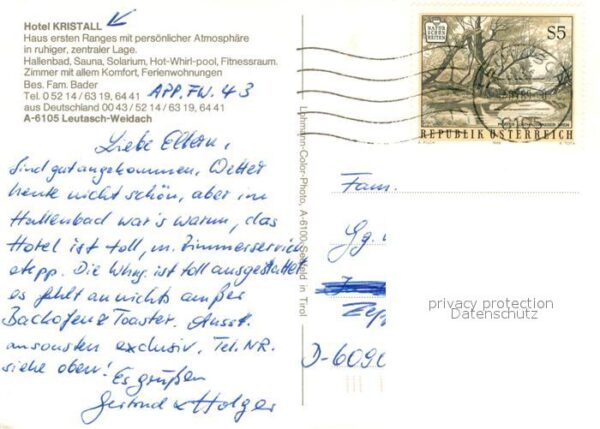 Hotel KRISTALL
Haus ersten Ranges mit persönlicher Atmosphäre
in ruhiger, zentraler Lage.
Hallenbad, Sauna, Solarium, Hot-Whirl-pool, Fitnessraum.
Zimmer mit allem Komfort, Ferienwohnungen
Bes. Fam. Bader
Tel. 0 52 14 / 63 19, 64 41
aus Deutschland 00 43 / 52 14 / 63 19, 64 41
A-6105 Leutasch-Weidach
APP. FW. 43
Liebe Eltern,
Sind gut angekommen. Wetter
heute nicht schön, aber im
Hallenbad war's warm, das
Hotel ist toll, m. Zimmerservice
etepp. Die Whg. ist toll ausgestattet
es fehlt an nichts außer
Backofen & Toaster. Ausst.
ansonsten exclusiv. Tel. NR.
siehe oben!
Es grüßen
Gertrud & Holger
Lohmann-Color-Photo, A-6100 Seefeld in Tirol
NATUR
SCHÖN
HEITEN
S5
REPUBLIK ÖSTERREICH
6105
Fam.
D-6090
privacy protection
Datenschutz